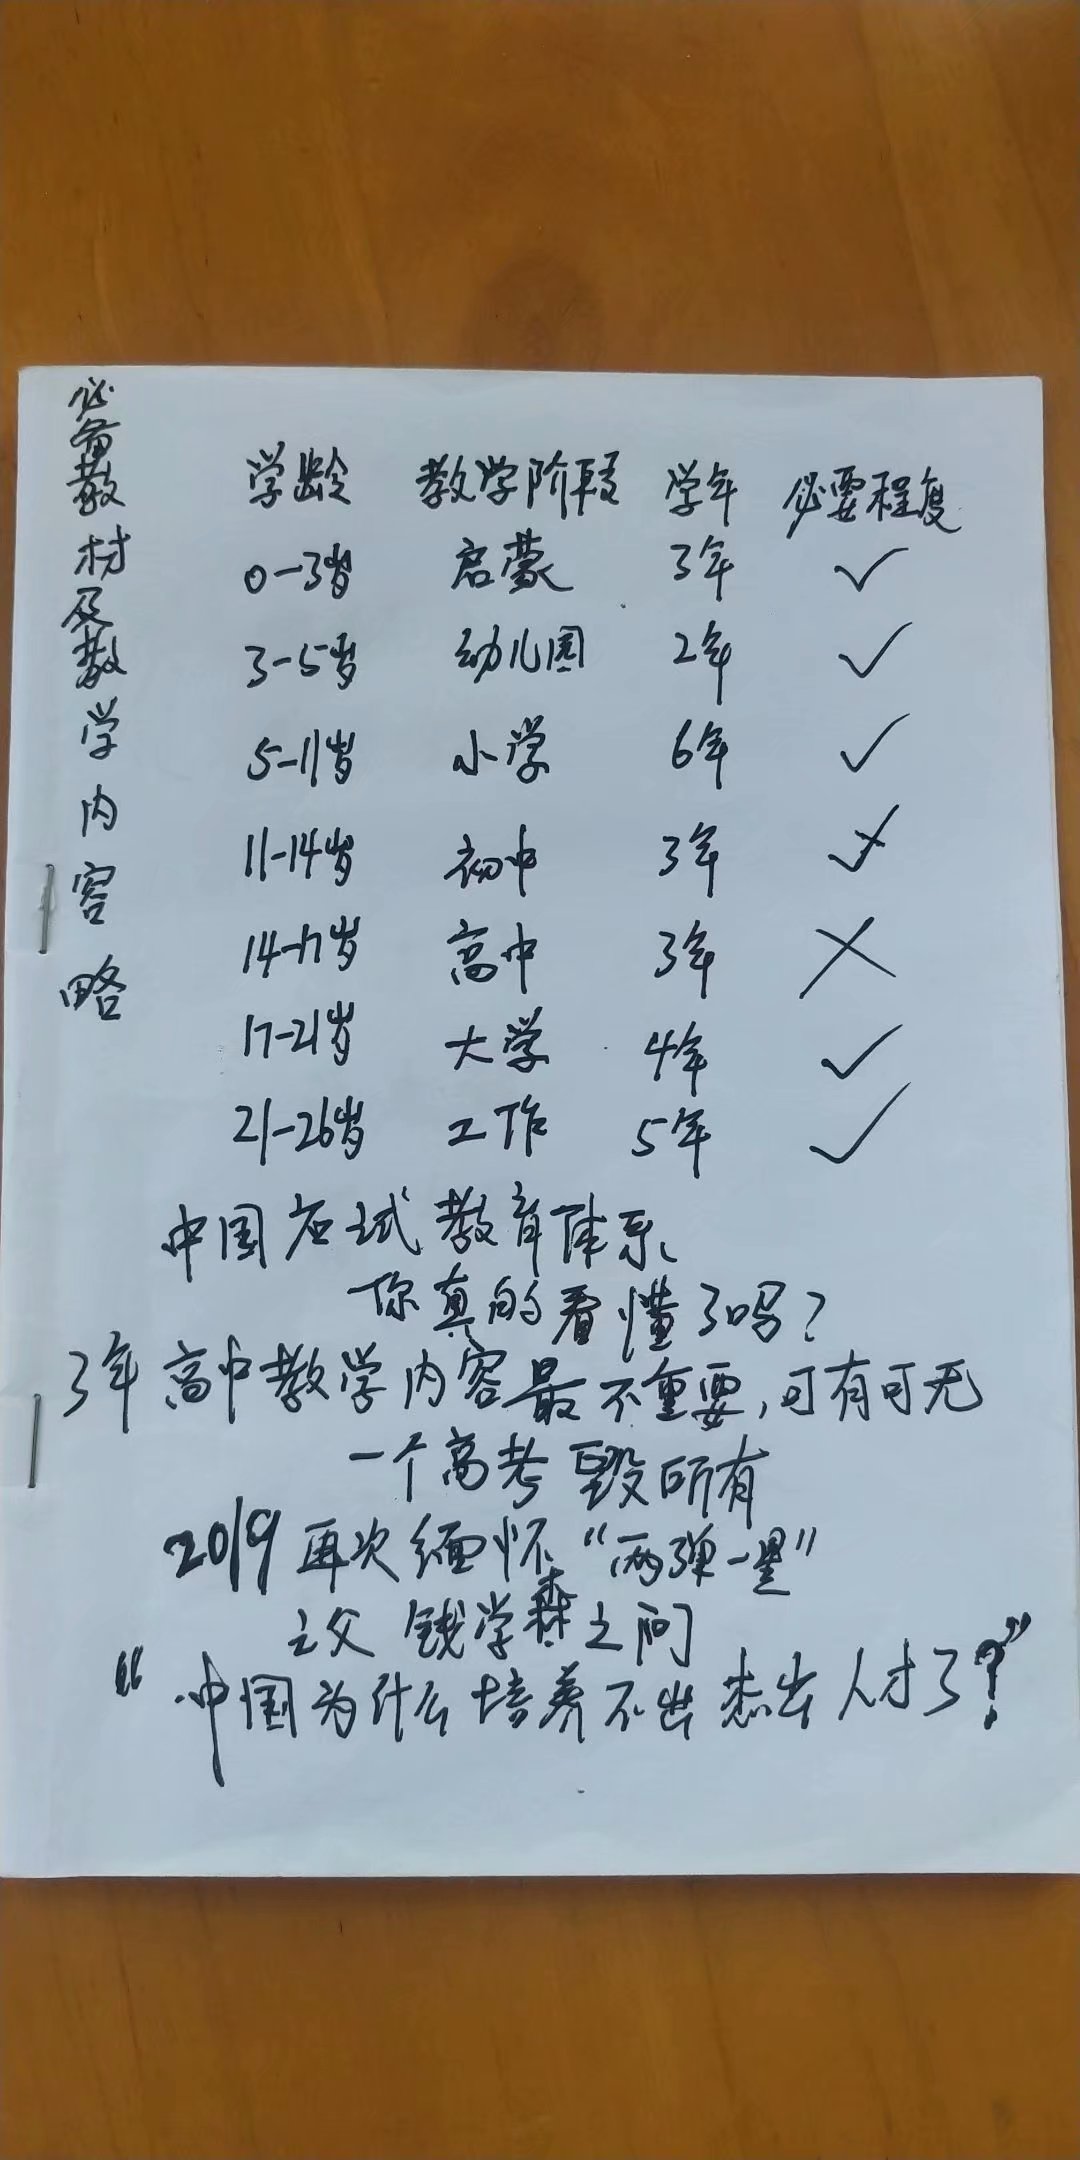 必备教材及教学内容略
学龄 教学阶段 学年 必要程度
0-3岁 启蒙 3年 ✓
3-5岁 幼儿园 2年 ✓
5-11岁 小学 6年 ✓
11-14岁 初中 3年 ✓
14-17岁 高中 3年 ×
17-21岁 大学 4年 ✓
21-26岁 工作 5年 ✓
中国应试教育体系、
你真的看懂了吗？
3年高中教学内容最不重要，可有可无
一个高考毁所有
2019再次缅怀“两弹一星”
之父 钱学森之问
“中国为什么培养不出杰出人才了？”